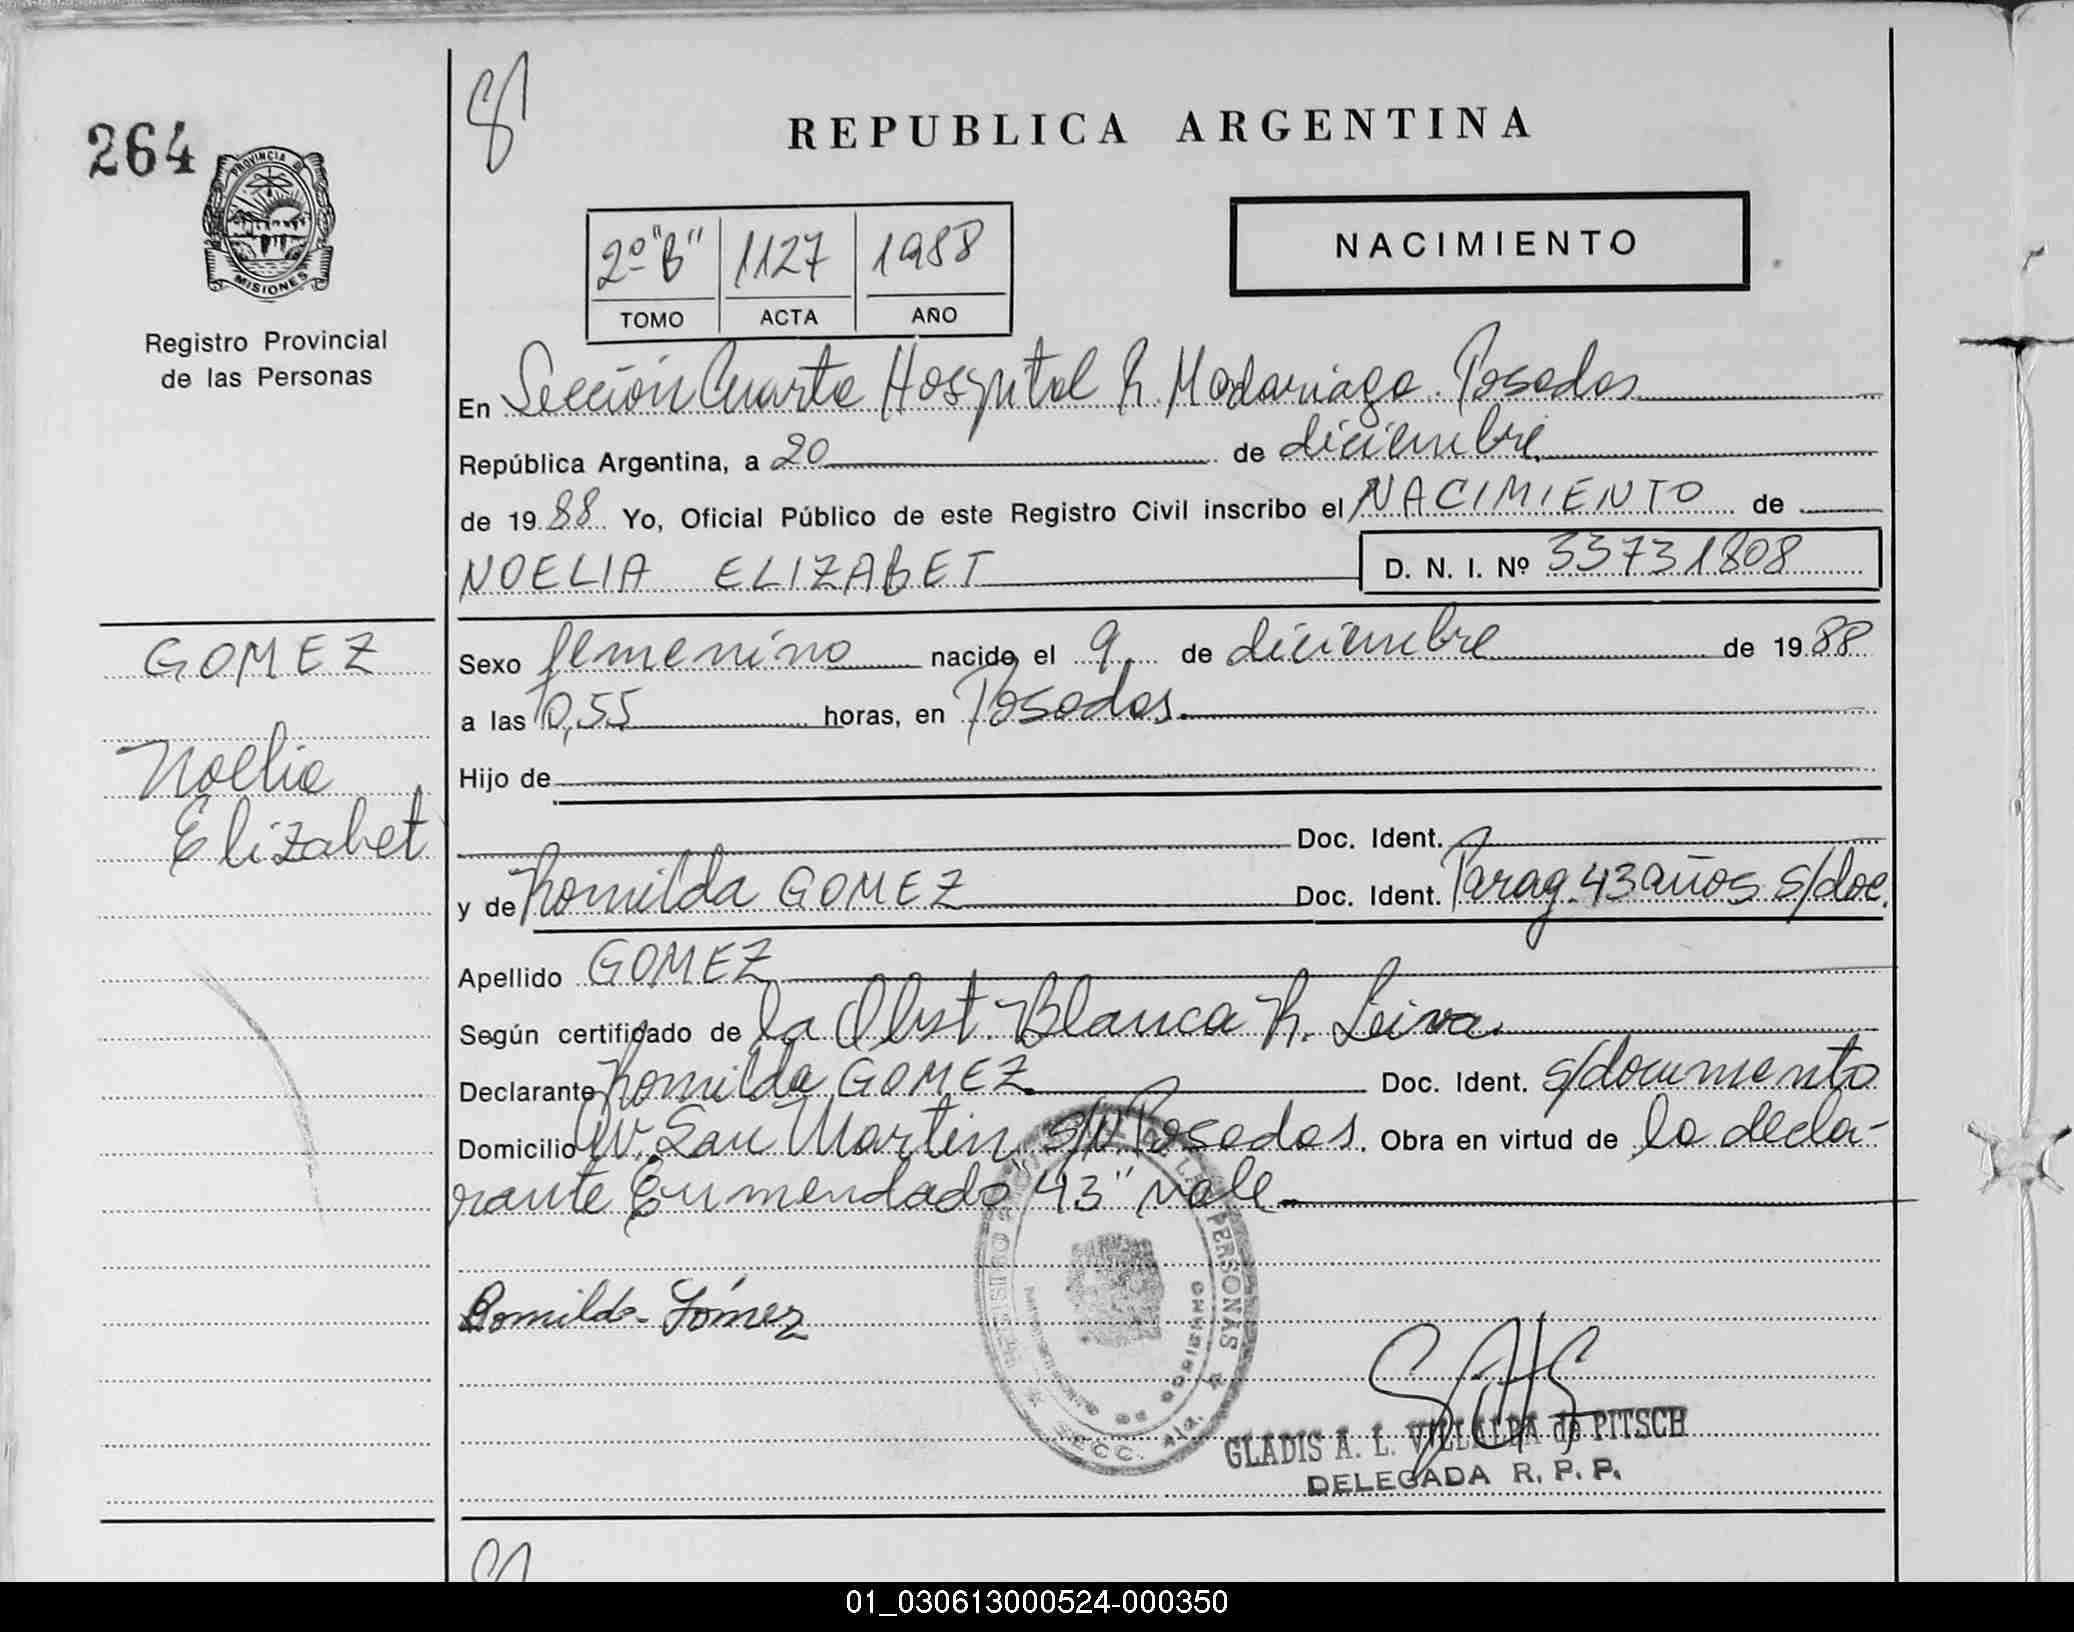 264
PROVINCIA DE
MISIONES
Registro Provincial
de las Personas
REPUBLICA ARGENTINA
2º "B" 1127 1988
TOMO ACTA AÑO
NACIMIENTO
En Sección Cuarta Hospital R. Madariaga. Posadas
República Argentina, a 20 de diciembre
de 1988 Yo, Oficial Público de este Registro Civil inscribo el NACIMIENTO de
NOELIA ELIZABET D. N. I. Nº 33731808
GOMEZ
Noelia
Elizabet
Sexo femenino nacido el 9 de diciembre de 1988
a las 10,55 horas, en Posadas
Hijo de
Doc. Ident.
y de Romilda GOMEZ Doc. Ident. Parag. 43 años s/doc.
Apellido GOMEZ
Según certificado de la Obst. Blanca R. Leiva.
Declarante Romilda GOMEZ Doc. Ident. s/documento
Domicilio Av. San Martin s/n Posadas. Obra en virtud de la decla-
rante Enmendado "43" vale
Romilda Gómez
PERSONAS
SECC. 4ta.
GLADIS A. L. VILLALBA de PITSCH
DELEGADA R. P. P.
01_030613000524-000350